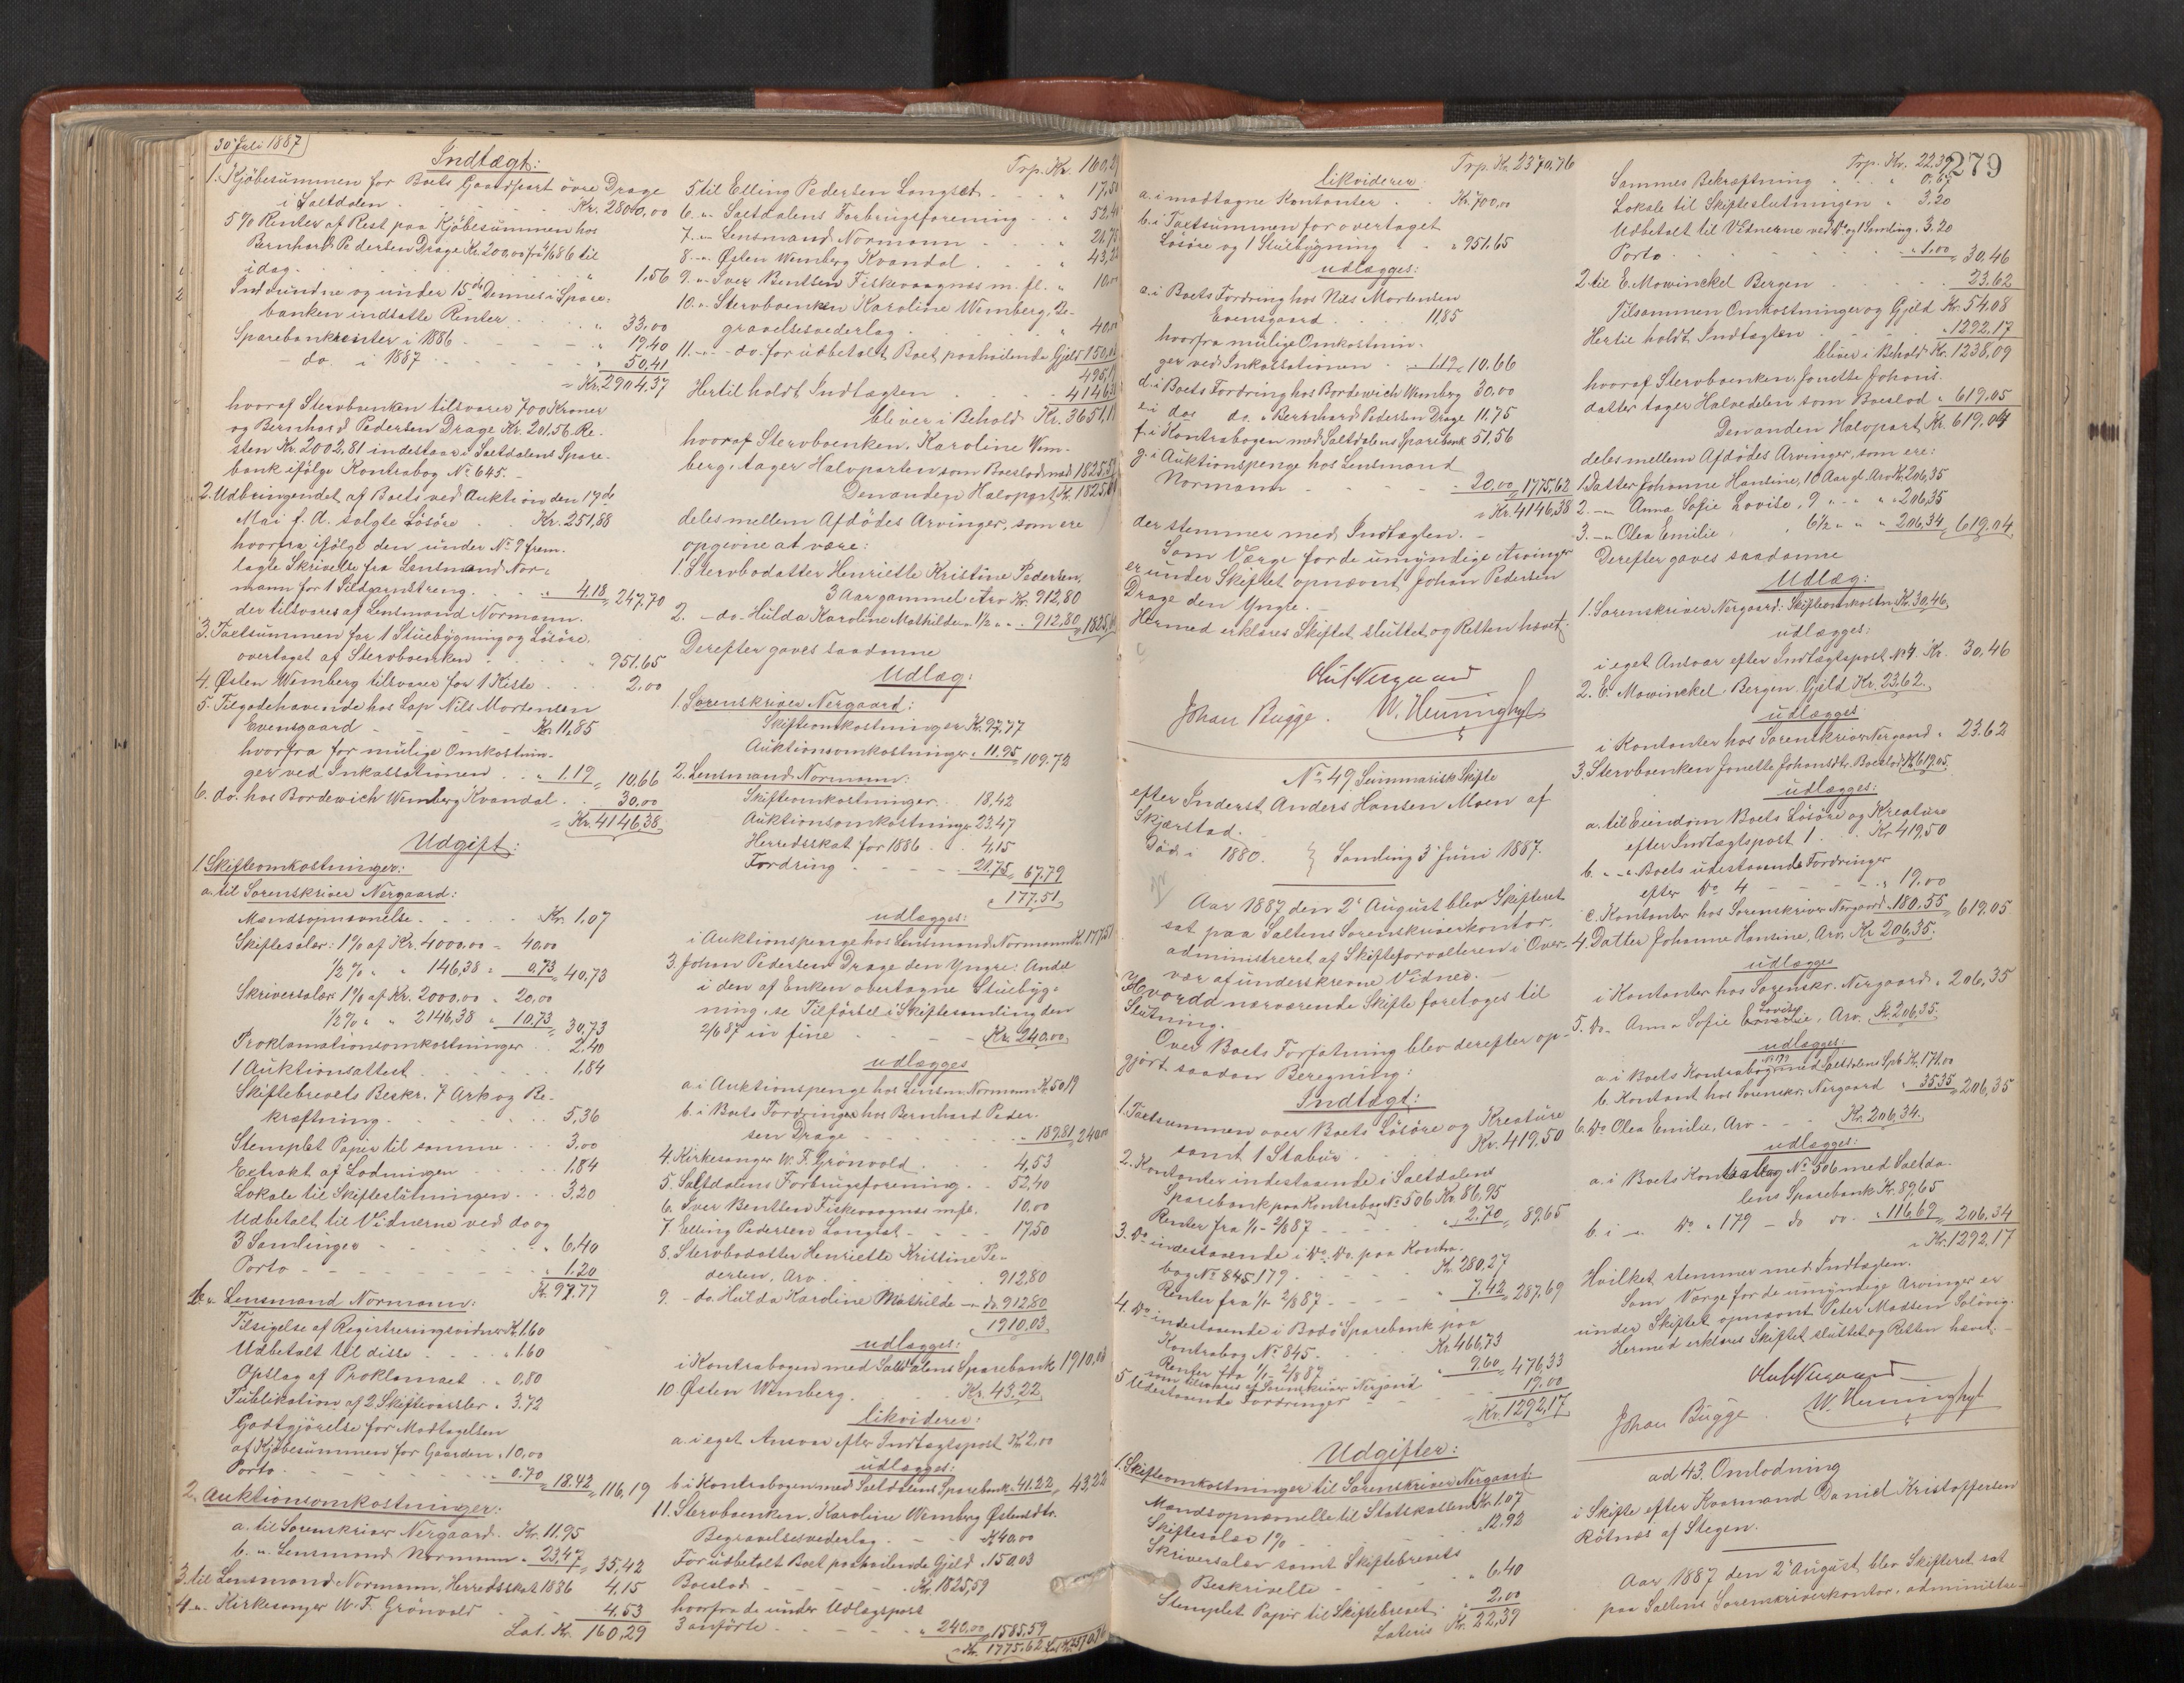 30 Juli 1887
Indtægt:
1. Kjöbesummen for Boets Gaardpart övre Drage
i Saltdalen . . . Kr. 2800,00
5 % Renter af Rest paa Kjöbesummen hos
Bernhard Pedersen Drage Kr. 200,00 fra 686 til
idag . . . " 1,56
Indvundne og under 15de Dennes i Spare-
banken indsatte Renter . . " 33,00
Sparebankrenter i 1886 . . . " 19,40
do. i 1887 . . . " 50,41
= Kr. 2904,37
hvoraf Stervboenken tilsvarer 700 Kroner
og Bernhard Pedersen Drage Kr. 201,56 Re-
sten Kr. 2002,81 indestaar i Saltdalens Spare-
bank ifölge Kontrabog No 645.
2. Udbringendet af Boets ved Auktion den 19de
Mai f. A. solgte Lösöre . . Kr. 251,88
hvorfra ifölge den under No 9 frem-
lagte Skrivelse fra Lensmand Nor-
mann for 1 Sildgarnstreng . . " 4,18 = 247,70
der tilsvares af Lensmand Normann.
3. Taxtsummen for 1 Stuebygning og Lösöre,
overtaget af Stervboenken . . " 951,65
4. Østen Wemberg tilsvarer for 1 Kiste . . 2,00
5. Tilgodehavende hos Lap Nils Mortensen
Evensgaard . . . Kr. 11,85
hvorfra for mulige Omkostnin-
ger ved Inkassationen . . " 1,19 = 10,66
6. do. hos Bordewich Wemberg Kvandal . . 30,00
= Kr. 4146,38
Udgift:
1. Skifteomkostninger:
a. til Sorenskriver Nergaard:
Mandsopnævnelse . . . Kr. 1,07
Skiftesalær: 1% af Kr. 4000,00 = 40,00
1/2 % " " 146,38 = 0,73 = 40,73
Skriversalær 1% af Kr. 2000,00 = 20,00
1/2 % " " 2146,38 = 10,73 = 30,73
Proklamationsomkostninger . . 2,40
1 Auktionsattest . . . 1,84
Skiftebrevets Beskr. 7 Ark og Be-
kræftning . . . 5,36
Stemplet Papir til samme . . . 3,00
Extrakt af Lodningen . . . 1,84
Lokale til Skifteslutningen . . . 3,20
Udbetalt til Vidnerne ved do og
3 Samlinger . . . " 6,40
Porto . . . " 1,20
Kr. 97,77
b. " Lensmand Normann:
Tilsigelse af Registreringsvidner Kr. 1,60
Udbetalt til disse . . . " 1,60
Opslag af Proklamaet . . " 0,80
Publikation af 2 Skiftevarsler " 3,72
Godtgjörelse for Modtagelsen
af Kjöbesummen for Gaarden " 10,00
Porto . . . " 0,70 = 18,42 = 116,19
2. Auktionsomkostninger:
a. til Sorenskriver Nergaard . Kr. 11,95
b. " Lensmand Normann " 23,47 = 35,42
3. til Lensmand Normann, Herredsskat 1886 4,15
4 " Kirkesanger W. F. Grönvold . . 4,53
Lat. Kr. 160,29
Trp. Kr. 160,29
5 til Elling Pedersen Langset . . . " 17,50
6 " Saltdalens Forbrugsforening . . " 52,40
7 " Lensmand Normann . . . " 21,75
8 " Østen Wemberg Kvandal . . . " 43,22
9 " Iver Bentsen Fiskevaagnes m. fl. " 10,00
10 " Stervboenken Karoline Wemberg, Be-
gravelsesvederlag . . . " 40,00
11 " do. for udbetalt Boet paahvilende Gjeld 150,03
495,
Hertil holdt Indtægten . . . 4146,38
bliver i Behold Kr. 3651,1
hvoraf Stervboenken, Karoline Wem-
berg, tager Halvparten som Boeslod med 1825,59
Den anden Halvpart Kr. 1825,60
deles mellem Afdödes Arvinger, som ere
opgivne at være:
1. Stervbodatter Henriette Kristine Pedersen,
3 Aar gammel Arv Kr. 912,80
2. do. Hulda Karoline Mathilde " 1 1/2 " " 912,80 = 1825,60
Derefter gaves saadanne
Udlæg:
1. Sorenskriver Nergaard:
Skifteomkostninger Kr. 97,77
Auktionsomkostninger " 11,95 = 109,72
2. Lensmand Normann:
Skifteomkostninger . . 18,42
Auktionsomkostninger 23,47
Herredsskat for 1886 . . 4,15
Fordring . . . 21,75 = 67,79
= 177,51
udlægges:
i Auktionspenge hos Lensmand Normann Kr. 177,51
3. Johan Pedersen Drage den Yngre: Andel
i den af Enken overtagne Stuebyg-
ning, se Tilförsel i Skiftesamling den
2/6 87 in fine . . . Kr. 240,00
udlægges
a. i Auktionspenge hos Lensm. Normann Kr. 50,19
b. i Boets Fordringer hos Bernhard Peder-
sen Drage . . . " 189,81 = 240,00
4. Kirkesanger W. F. Grönvold . . . 4,53
5. Saltdalens Forbrugsforening . . 52,40
6. Iver Bentsen Fiskevaagnes m fl. 10,00
7. Elling Pedersen Langset . . . 17,50
8. Stervbodatter Henriette Kristine Pe-
dersen, Arv . . . 912,80
9. do. Hulda Karoline Mathilde " do 912,80
1910,03
udlægges:
i Kontrabogen med Saltdalens Sparebank 1910,03
10. Østen Wemberg . . . Kr. 43,22
likviderer:
a. i eget Ansvar efter Indtægtspost 4 Kr. 2,00
udlægges:
b. i Kontrabogen med Saltdalens Sparebank " 41,22 = 43,22
11. Stervboenken, Karoline Wemberg Østensdtr.
Begravelsesvederlag . . . Kr. 40,00
For udbetalt Boet paahvilende Gjeld " 150,03
Boeslod . . . Kr. 1825,59
hvorfra de under Udlægspost
3 anförte . . . " 240,00 = 1585,59
= Kr. 1775,62 Lat. Kr. 2370,76
Trp. Kr. 2370,76
likviderer:
a. i modtagne Kontanter . . Kr. 700,00
b. i Taxtsummen for overtaget
Lösöre og 1 Stuebygning . . " 951,65
udlægges:
c. i Boets Fordring hos Nils Mortensen
Evensgaard . . . 11,85
hvorfra mulige Omkostnin-
ger ved Inkassationen . . 1,19 = 10,66
d. i Boets Fordring hos Bordewich Wemberg 30,00
e. i dos do. " Bernhard Pedersen Drage 11,75
f. i Kontrabogen med Saltdalens Sparebank 51,56
g. i Auktionspenge hos Lensmand
Normann . . . " 20,00 = 1775,62
= Kr. 4146,38
der stemmer med Indtægten. -
Som Værge for de umyndige Arvinger
er under Skiftet opnævnt Johan Pedersen
Drage den Yngre. -
Hermed erklæres Skiftet sluttet og Retten hævet.
Johan Bugge.
No 49, Summarisk Skifte
efter Inderst Anders Hansen Moen af
Skjærstad.
Död i 1880. } Samling 3 Juni 1887.
Aar 1887 den 2 August blev Skifteret
sat paa Saltens Sorenskriverkontor,
administreret af Skifteforvalteren i Over-
vær af underskrevne Vidner. -
Hvorda nærværende Skifte foretoges til
Slutning.
Over Boets Forfatning blev derefter op-
gjort saadan Beregning:
Indtægt:
1. Taxtsummen over Boets Lösöre og Kreature
samt 1 Stabur . . . Kr. 419,50
2. Kontanter indestaaende i Saltdalens
Sparebank paa Kontrabog No 506 Kr. 86,95
Renter fra 1/1 - 2/8 87 . . . " 2,70 = 89,65
3. Do indestaaende i Do. Do. paa Kontra-
bog No 845 179 . . . Kr. 280,27
Renter fra 1/1 - 2/8 87 . . . 7,42 = 287,69
4. Do indestaaende i Bodö Sparebank paa
Kontrabog No 845 . . . Kr. 466,73
Renter fra 1/1 - 2/8 87 . . . " 9,60 = 476,33
som tilsvares af Sorenskriver Nergaard
5 Udestaaende Fordringer . . . 19,00
= Kr. 1292,17
Udgifter:
1. Skifteomkostninger til Sorenskriver Nergaard:
Mandsopnævnelse til Statskassen Kr. 1,07
Skiftesalær 1% . . . " 12,92
Skriversalær samt Skiftebrevets
Beskrivelse . . . " 6,40
Stemplet Papir til Skiftebrevet . " 2,00
Lateris Kr. 22,39
279
Trp. Kr. 22,39
Sammes Bekræftning . . . " 0,67
Lokale til Skifteslutningen " 3,20
Udbetalt til Vidnerne ved Do og 1 Samling " 3,20
Porto . . . " 1,00 = 30,46
2 til E. Mowinckel Bergen . . . 23,62
Tilsammen Omkostninger og Gjeld Kr. 54,08
Hertil holdt Indtægten . . . " 1292,17
bliver i Behold Kr. 1238,09
hvoraf Stervboenken, Jonette Johans-
datter tager Halvedelen som Boeslod " 619,05
Den anden Halvpart Kr. 619,04
deles mellem Afdödes Arvinger, som ere:
1. Datter Johanne Hansine, 10 Aar gl. Arv Kr. 206,35
2. " Anna Sofie Lovise, 9 " " " 206,35
3. " Olea Emilie, 6 1/2 " " " 206,34 = 619,04
Derefter gaves saadanne
Udlæg:
1. Sorenskriver Nergaard: Skifteomkostn. Kr. 30,46
udlægges:
i eget Ansvar efter Indtægtspost No 4 Kr. 30,46
2. E. Mowinckel, Bergen, Gjeld Kr. 23,62.
udlægges:
i Kontanter hos Sorenskriver Nergaard " 23,62
3. Stervboenken Jonette Johansdtr. Boeslod Kr. 619,05.
udlægges:
a. til Eiendom Boets Lösöre og Kreature
efter Indtægtspost 1 . . . Kr 419,50
b. " " Boets udestaaende Fordringer
efter Do 4 . . . " 19,00
c. Kontanter hos Sorenskriver Nergaard " 180,55 = 619,05
4. Datter Johanne Hansine, Arv, Kr. 206,35.
udlægges
i Kontanter hos Sorenskr. Nergaard " 206,35
5. Do Anna Sofie Emilie Lovise, Arv. Kr. 206,35.
udlægges:
a. i Boets Kontrabog No 179 med Saltdalens Spb. Kr. 171,00
b. Kontant hos Sorenskr. Nergaard " 35,35 = 206,35
6. Do Olea Emilie, Arv . . . Kr. 206,34.
udlægges:
a. i Boets Kontrabog No 506 med Saltda-
lens Sparebank Kr. 89,65
b. i " Do " 179 - do do. " 116,69 = 206,34
= Kr. 1292,17
Hvilket stemmer med Indtægten.
Som Værge for de umyndige Arvinger er
under Skiftet opnævnt Peter Madsen Solövig.
Hermed erklæres Skiftet sluttet og Retten hævet. -
Johan Bugge.
ad 43. Omlodning
i Skifte efter Kaarmand Daniel Kristoffersen
Rötnæs af Stegen.
Aar 1887 den 2 August blev Skifteret sat
paa Saltens Sorenskriverkontor, administre-